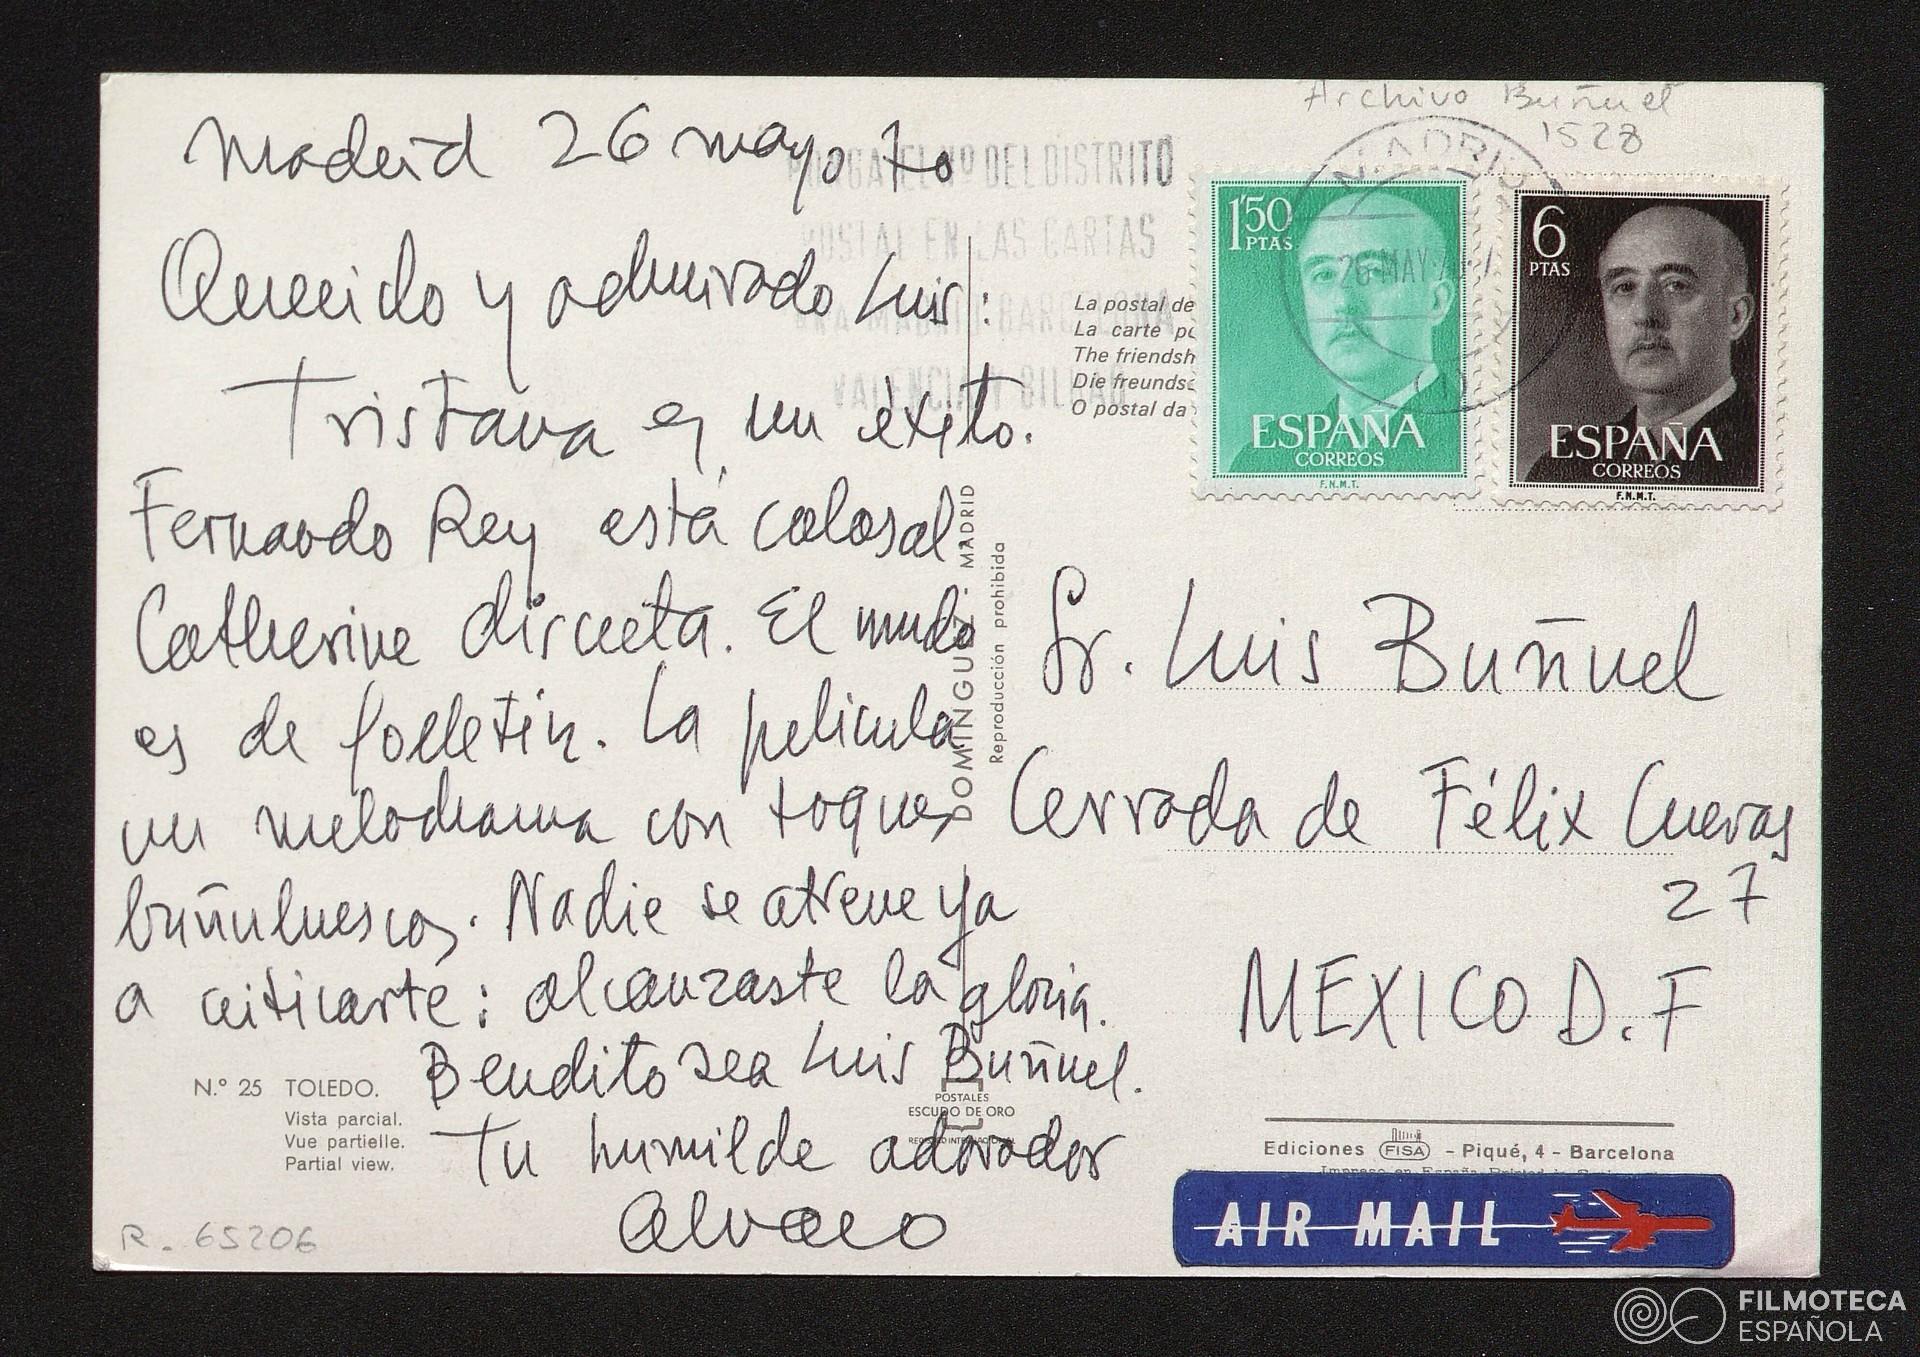 Archivo Buñuel
1528
Madrid 26 mayo 70
PONGA EL Nº DEL DISTRITO
POSTAL EN LAS CARTAS
PARA MADRID BARCELONA
VALENCIA Y BILBAO
MADRID
26 MAY 70
Querido y admirado Luis:
Tristana es un éxito.
Fernando Rey está colosal.
Catherine discreta. El mudo
es de folletín. La película
un melodrama con toques
buñuluescos. Nadie se atreve ya
a criticarte: alcanzaste la gloria.
Bendito sea Luis Buñuel.
Tu humilde adorador
Alvaro
Nº 25 TOLEDO.
Vista parcial.
Vue partielle.
Partial view.
R. 65206
DOMINGUEZ. MADRID
Reproducción prohibida
POSTALES
ESCUDO DE ORO
La postal de
La carte po
The friendsh
Die freundsc
O postal da
1'50
PTAS
ESPAÑA
CORREOS
F.N.M.T.
6
PTAS
ESPAÑA
CORREOS
F.N.M.T.
Sr. Luis Buñuel
Cerrada de Félix Cuevas
27
MEXICO D.F
Ediciones FISA - Piqué, 4 - Barcelona
AIR MAIL
FILMOTECA
ESPAÑOLA